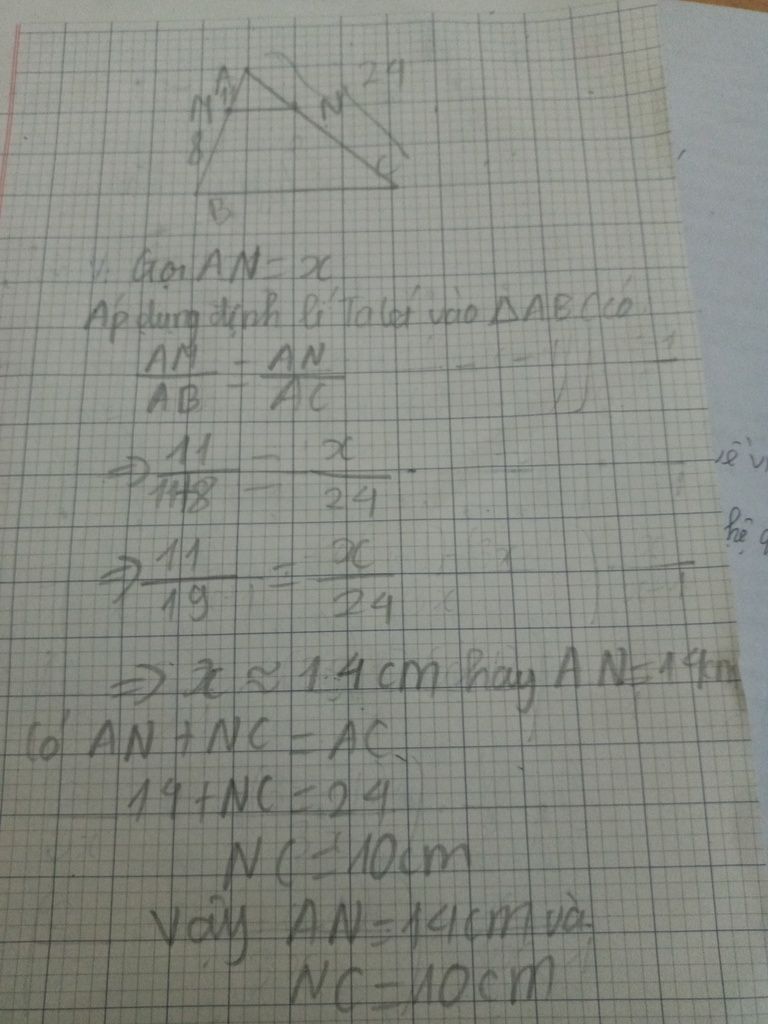 A
24
M
N
8
C
B
Gọi AN = x
Áp dụng định lí Ta lét vào ΔABC có
AM/AB = AN/AC
⇒ 11/11+8 = x/24
⇒ 11/19 = x/24
⇒ x ≈ 14 cm hay AN = 14cm
Có AN + NC = AC
14 + NC = 24
NC = 10cm
Vậy AN = 14cm và
NC = 10cm